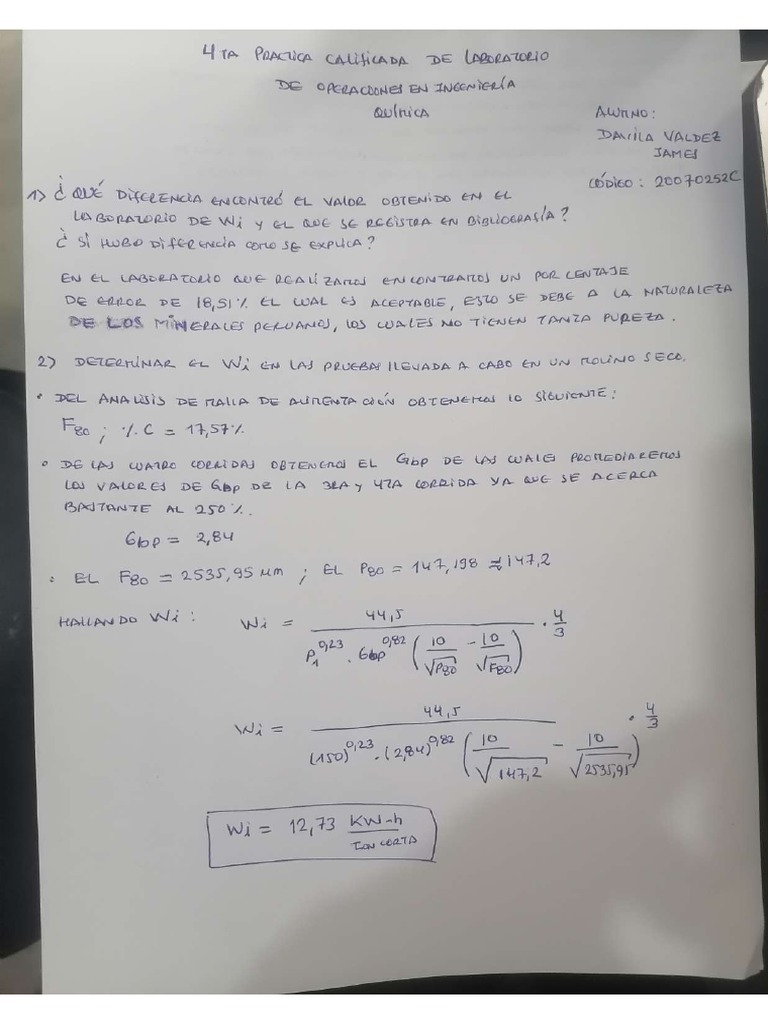 4TA PRACTICA CALIFICADA DE LABORATORIO
DE OPERACIONES EN INGENIERÍA
QUÍMICA
ALUMNO:
DAVILA VALDEZ
JAMES
CÓDIGO: 20070252C
1) ¿QUÉ DIFERENCIA ENCONTRÓ EL VALOR OBTENIDO EN EL
LABORATORIO DE Wi Y EL QUE SE REGISTRA EN BIBLIOGRAFÍA?
¿SI HUBO DIFERENCIA COMO SE EXPLICA?
EN EL LABORATORIO QUE REALIZAMOS ENCONTRAMOS UN PORCENTAJE
DE ERROR DE 18,51% EL CUAL ES ACEPTABLE, ESTO SE DEBE A LA NATURALEZA
DE LOS MINERALES PERUANOS, LOS CUALES NO TIENEN TANTA PUREZA.
2) DETERMINAR EL Wi EN LAS PRUEBA LLEVADA A CABO EN UN MOLINO SECO.
• DEL ANALISIS DE MALLA DE ALIMENTACIÓN OBTENEMOS LO SIGUIENTE:
F80 ; %C = 17,57%
• DE LAS CUATRO CORRIDAS OBTENEMOS EL Gbp DE LAS CUALES PROMEDIAREMOS
LOS VALORES DE Gbp DE LA 3RA Y 4TA CORRIDA YA QUE SE ACERCA
BASTANTE AL 250%.
Gbp = 2,84
• EL F80 = 2535,95 µm ; EL P80 = 147,198 ≈ 147,2
HALLANDO Wi: Wi = 44,5 / (P1^0,23 . Gbp^0,82 (10/√P80 - 10/√F80)) . 4/3
Wi = 44,5 / ((150)^0,23 . (2,84)^0,82 (10/√147,2 - 10/√2535,95)) . 4/3
Wi = 12,73 KW-h / TON CORTA